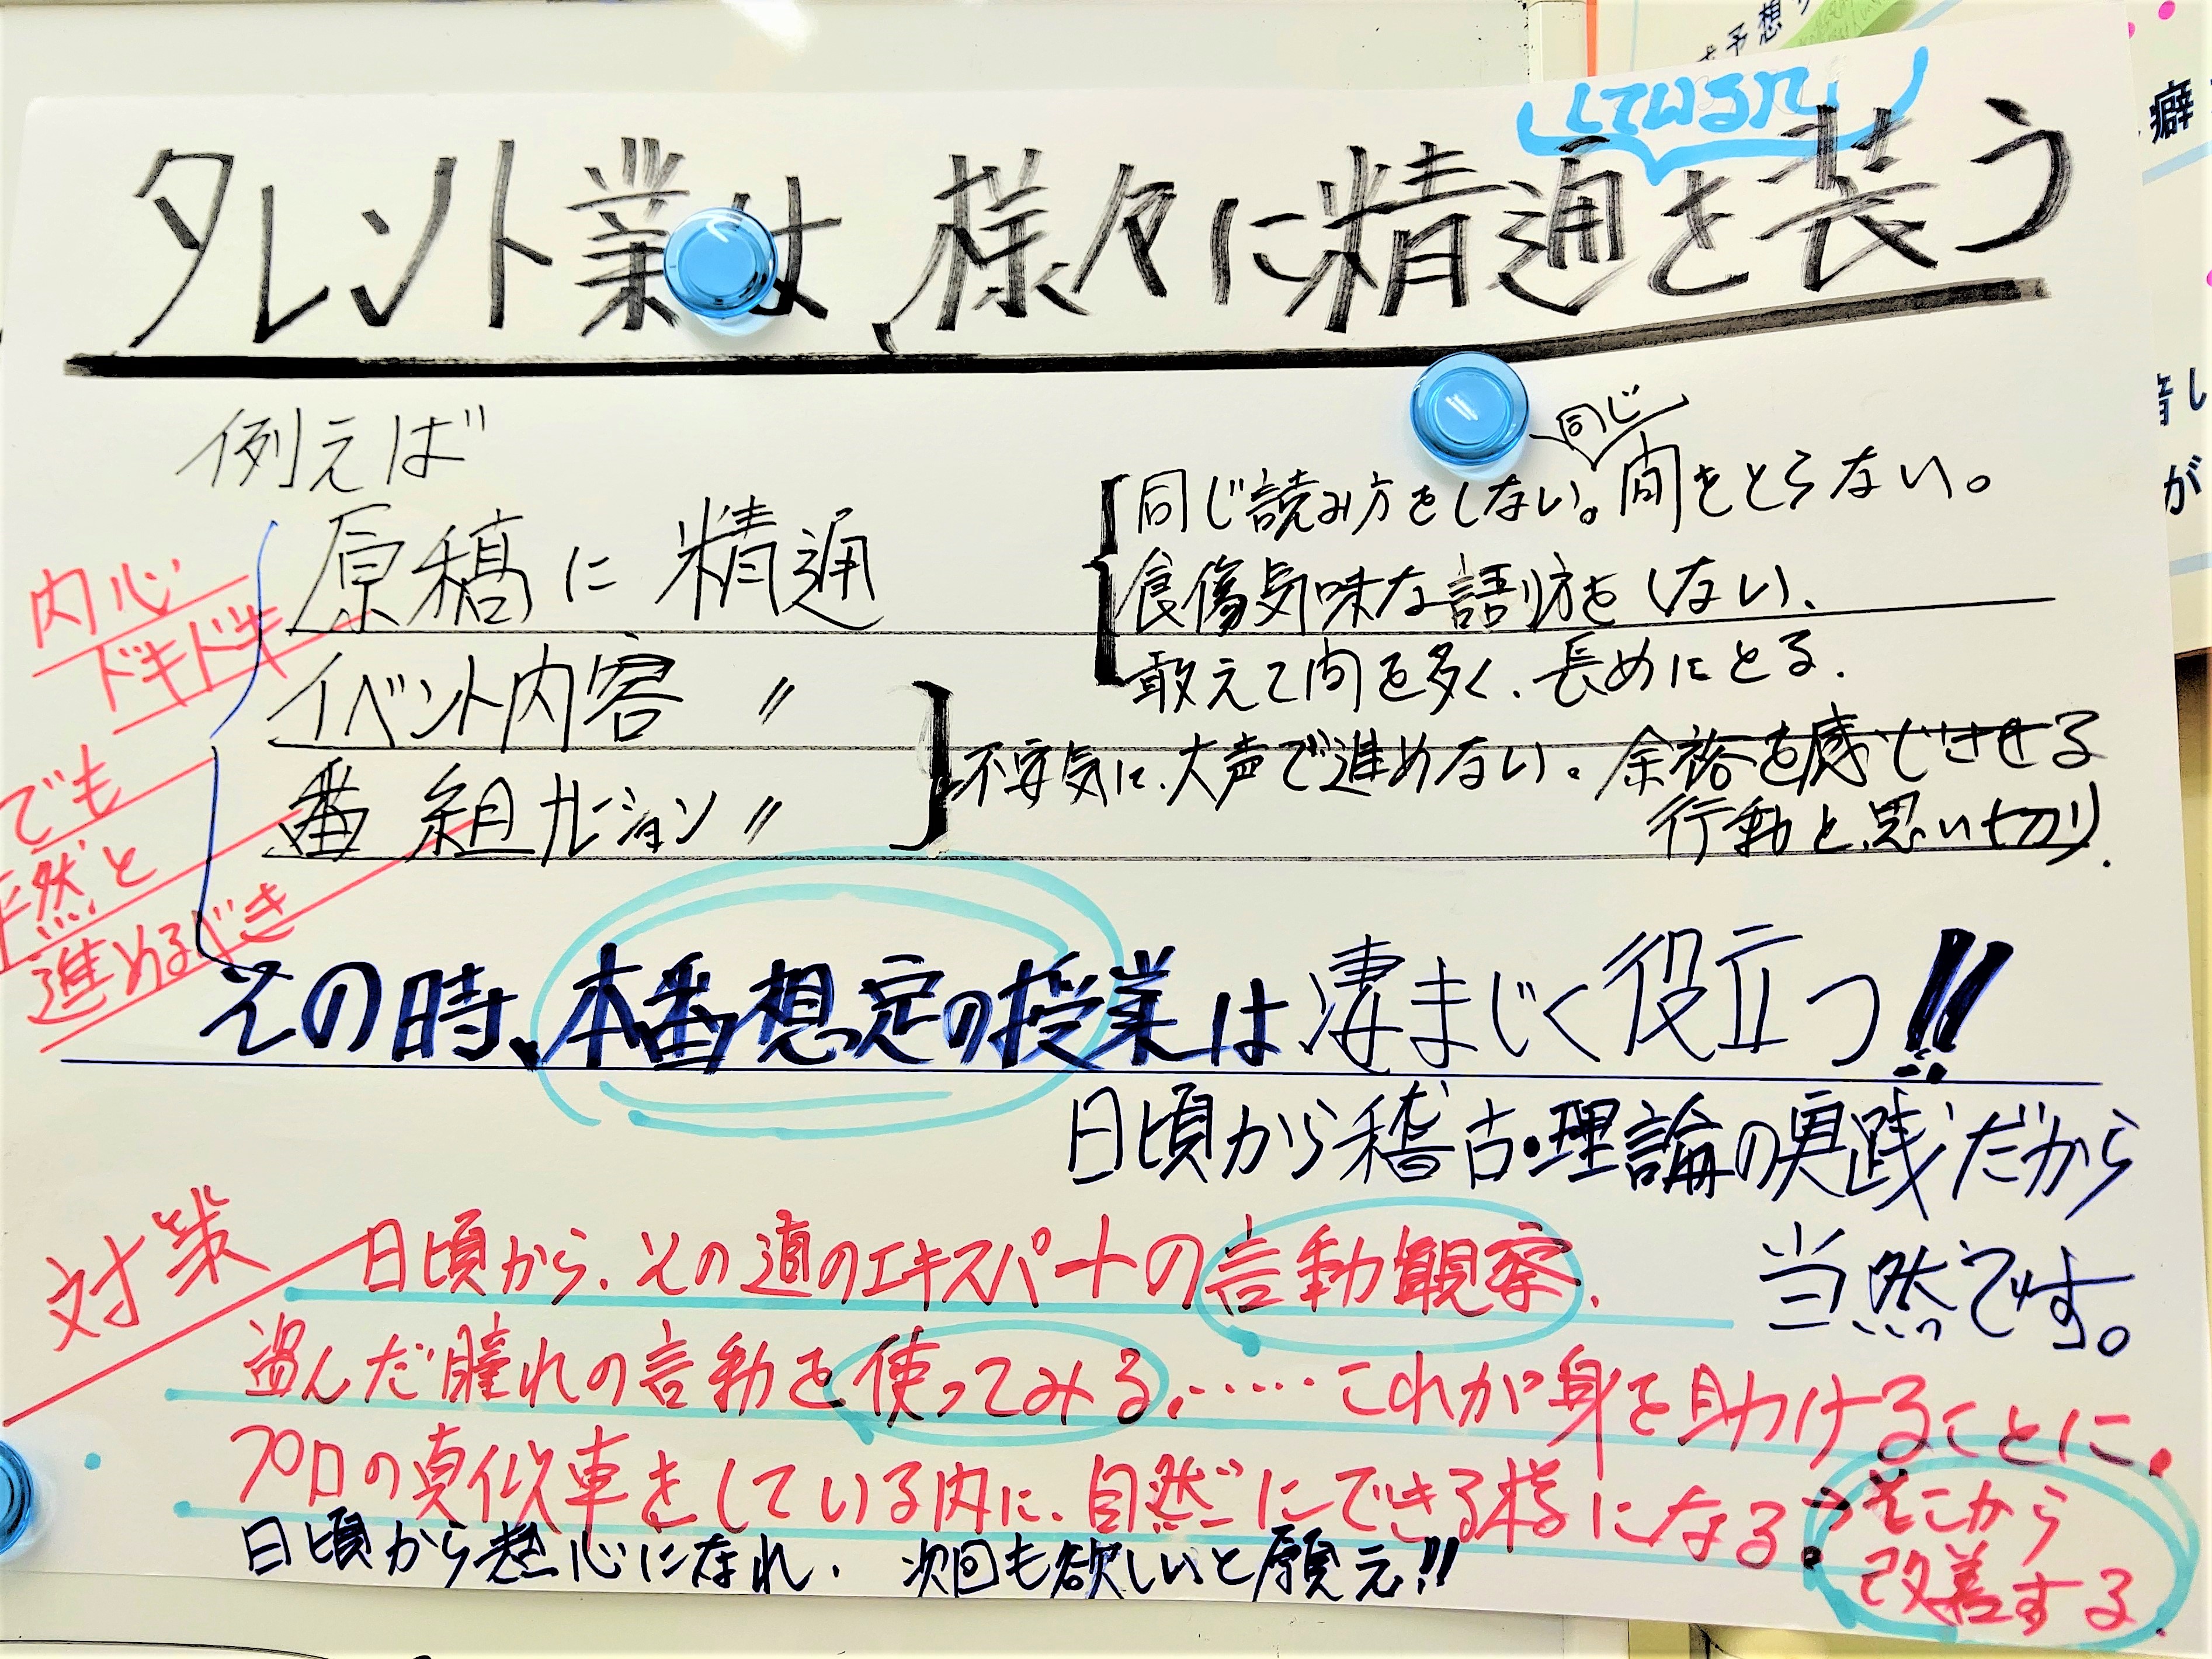 している風
タレント業は、様々に精通を装う
例えば
原稿に精通
イベント内容 〃
番組 〃
同じ
同じ読み方をしない。間をとらない。
食傷気味な語り方をしない、
敢えて間を多く、長めにとる.
不安気に、大声で進めない。余裕を感じさせる
行動と思い切り.
内心
ドキドキ
でも
然と
進めるべき
その時、本番想定の授業は凄まじく役立つ!!
日頃から稽古・理論の実践だから
当然です。
対策
日頃から、その道のエキスパートの言動観察.
盗んだ憧れの言動を使ってみる、……これが身を助けることに.
プロの真似事をしている内に、自然にできる様になる。
そこから
改善する.
日頃から熱心になれ. 次回も欲しいと願え!!
予想
癖
し
が